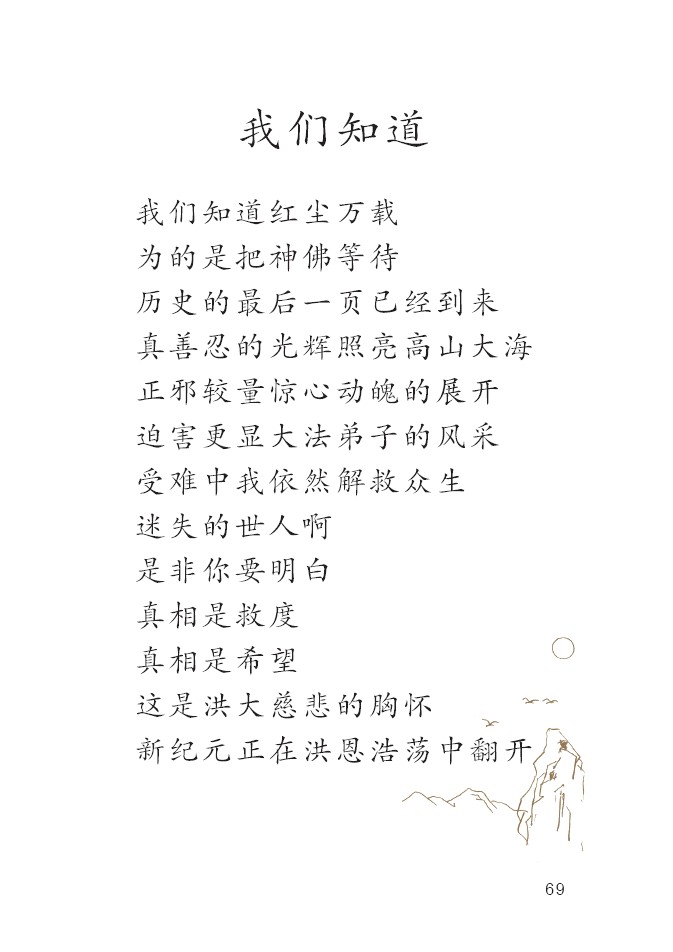 我们知道
我们知道红尘万载
为的是把神佛等待
历史的最后一页已经到来
真善忍的光辉照亮高山大海
正邪较量惊心动魄的展开
迫害更显大法弟子的风采
受难中我依然解救众生
迷失的世人啊
是非你要明白
真相是救度
真相是希望
这是洪大慈悲的胸怀
新纪元正在洪恩浩荡中翻开
69